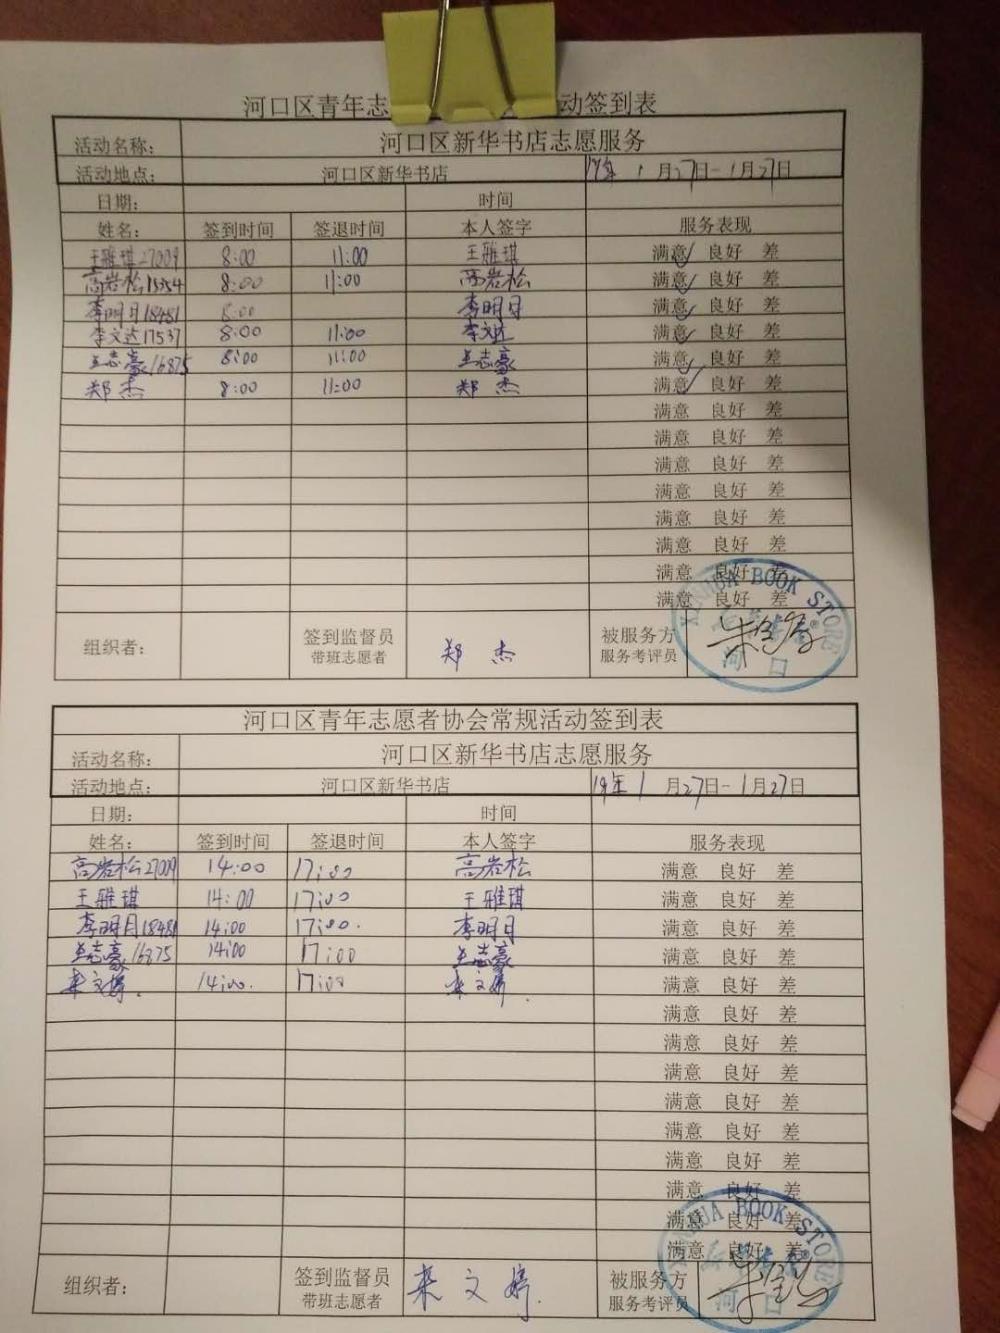 河口区青年志 动签到表
活动名称： 河口区新华书店志愿服务
活动地点： 河口区新华书店 19年 1月27日-1月27日
日期： 时间
姓名： 签到时间 签退时间 本人签字 服务表现
王雅琪27009 8:00 11:00 王雅琪 满意✓ 良好 差
高岩松 8:00 11:00 高岩松 满意✓ 良好 差
李明月18481 8:00 李明月 满意✓ 良好 差
李文达17537 8:00 11:00 李文达 满意✓ 良好 差
王志豪16875 8:00 11:00 王志豪 满意✓ 良好 差
郑杰 8:00 11:00 郑杰 满意✓ 良好 差
满意 良好 差
满意 良好 差
满意 良好 差
满意 良好 差
满意 良好 差
满意 良好 差
满意 良好 差
满意 良好 差
XINHUA BOOK STORE
河口
组织者： 签到监督员 郑杰 被服务方
带班志愿者 服务考评员
河口区青年志愿者协会常规活动签到表
活动名称： 河口区新华书店志愿服务
活动地点： 河口区新华书店 19年 1月27日-1月27日
日期： 时间
姓名： 签到时间 签退时间 本人签字 服务表现
高岩松27009 14:00 17:00 高岩松 满意 良好 差
王雅琪 14:00 17:00 王雅琪 满意 良好 差
李明月18481 14:00 17:00. 李明月 满意 良好 差
王志豪16875 14:00 17:00 王志豪 满意 良好 差
文婷. 14:00. 17:00 文婷. 满意 良好 差
满意 良好 差
满意 良好 差
满意 良好 差
满意 良好 差
满意 良好 差
满意 良好 差
满意 良好 差
满意 良好 差
满意 良好 差
XINHUA BOOK STORE
河口
组织者： 签到监督员 文婷. 被服务方
带班志愿者 服务考评员